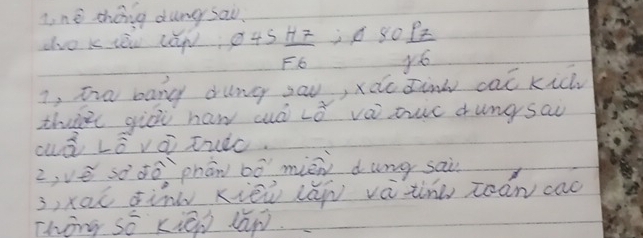 1, hệ thống dung sai.
cho kiểu lắp: ∅45 H7/F6 ; ∅ 80 P7/g6
1, tra bảng dung sau, xác định các kích
thước giới hạn của Lỗ và trục dung sai
của Lỗ và trục.
2, vẽ sơ đồ phân bố miền dung sai.
3, xác định kiểu lắp và tính toán các
thông số kiểu lắp.